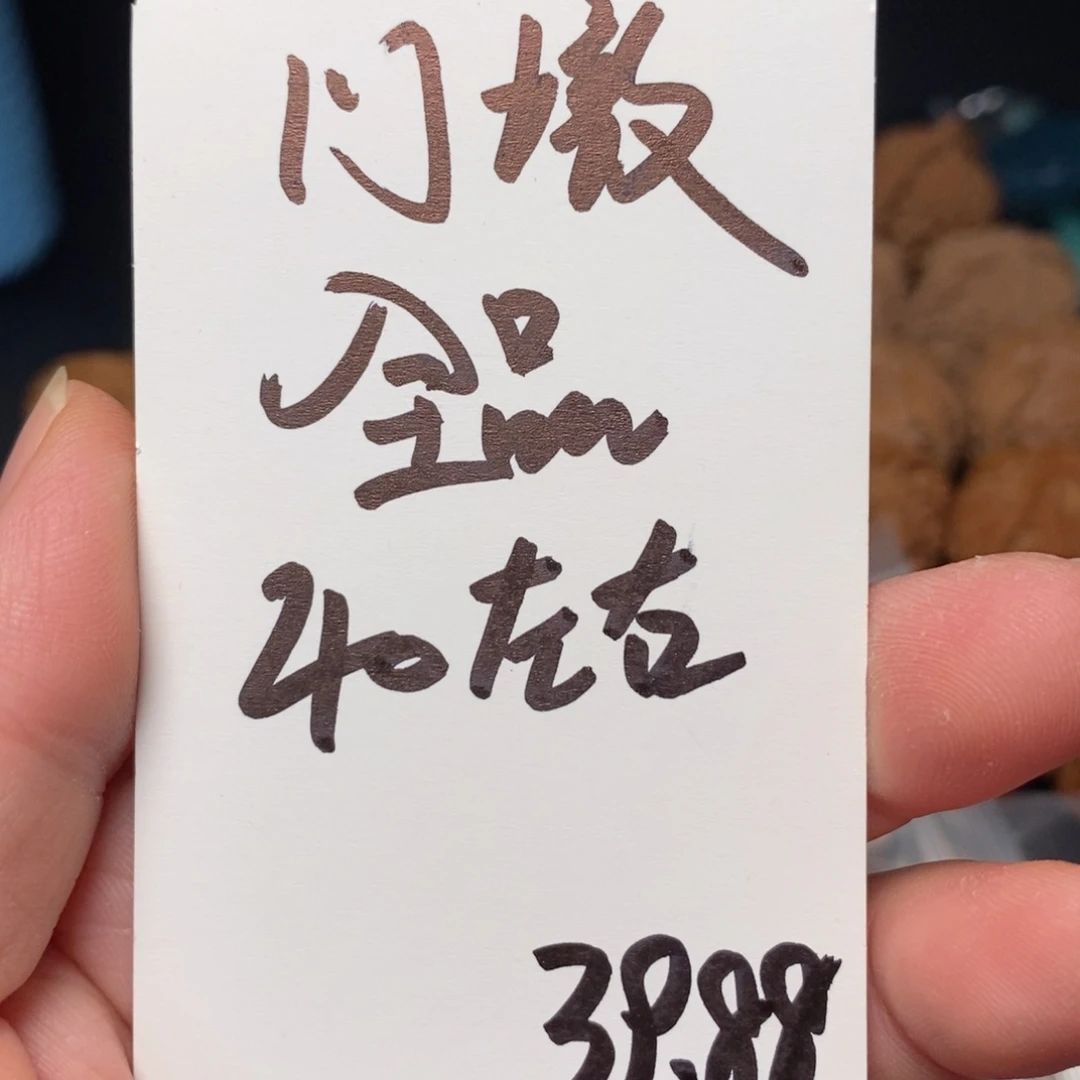 门墩
全品
40左右
38.88